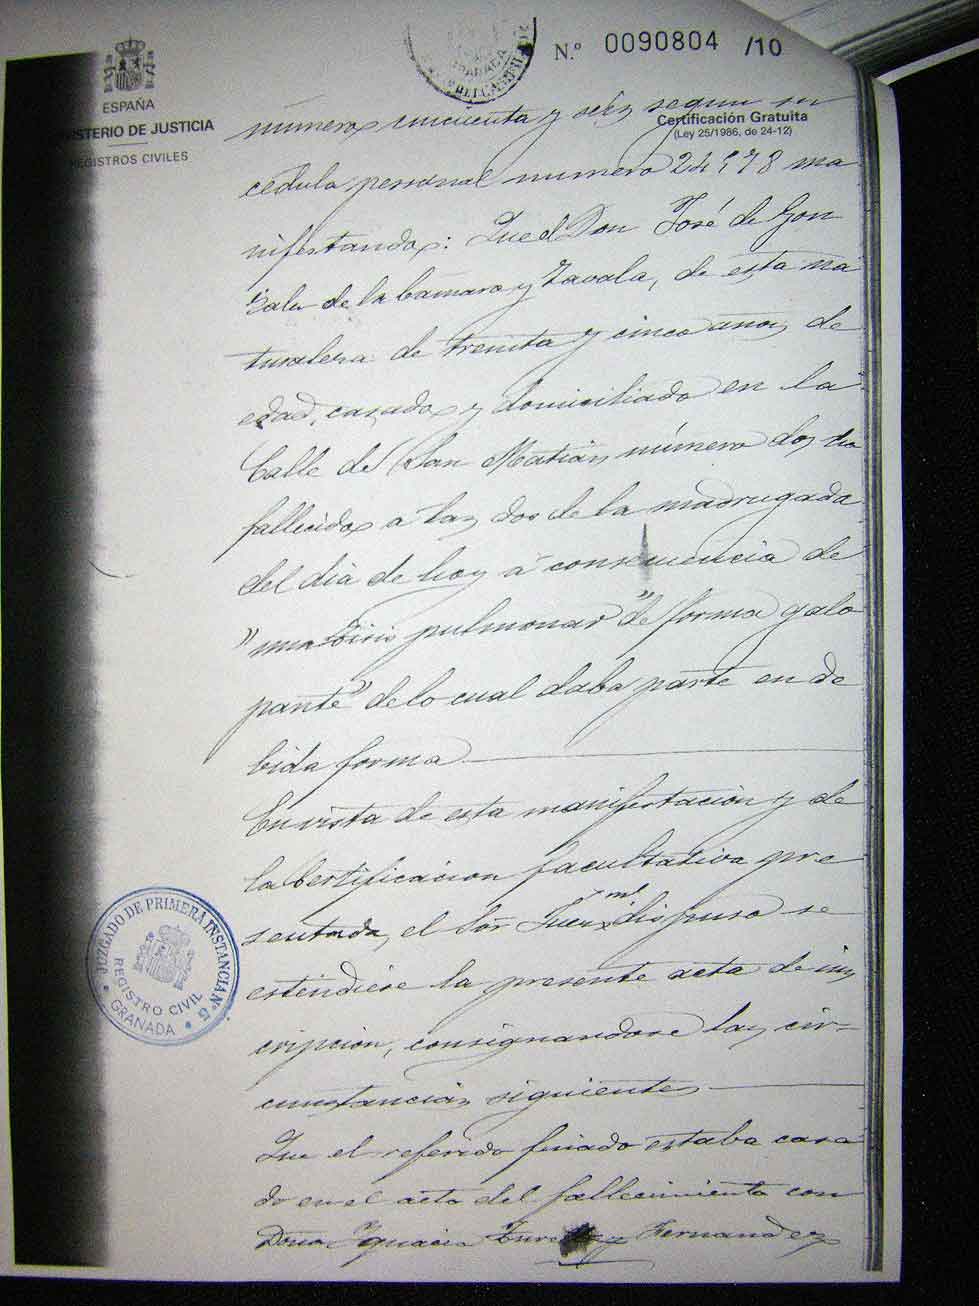 GRANADA
N.º 0090804 /10
ESPAÑA
ISTERIO DE JUSTICIA
REGISTROS CIVILES
Certificación Gratuita
(Ley 25/1986, de 24-12)
número cincuenta y seis segun su
cédula personal numero ma
nifestando: Que el Don José de Gon
zalez de la Cámara y Zavala, de esta na
turaleza de treinta y cinco años de
edad, casado y domiciliado en la
Calle de San Matias número dos ha
fallecido a las dos de la madrugada
del dia de hoy á consecuencia de
pulmonar" de forma galo
pante" de lo cual daba parte en de
bida forma
En vista de esta manifestación y de
la Certificacion facultativa pre
sentada, el Sór Juez ml dispuso se
estendiese la presente acta de ins
cripcion, consignandose las cir-
cunstancias siguientes
Que el referido finado estaba casa
do en el acto del fallecimiento con
Doña Ignacia y Fernandez
JUZGADO DE PRIMERA INSTANCIA Nº 5
REGISTRO CIVIL
GRANADA